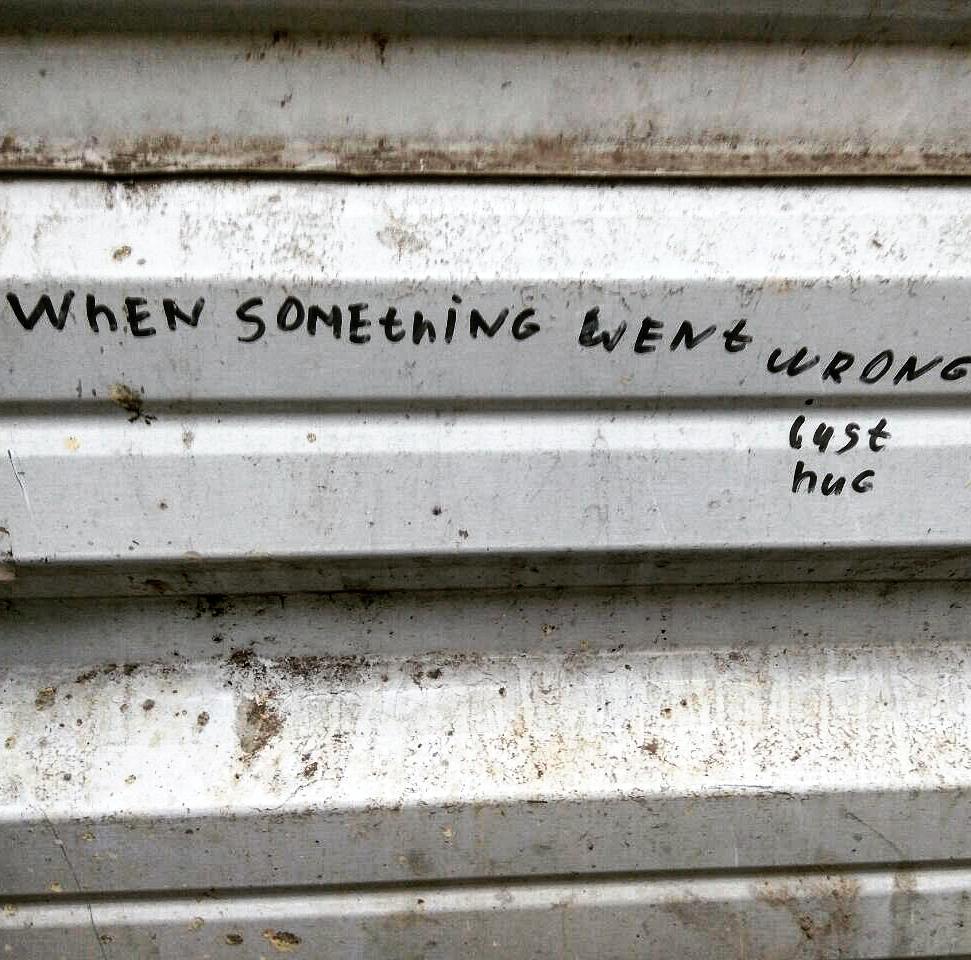 WhEN SOMEthiNG WENt WRONG
just
hug